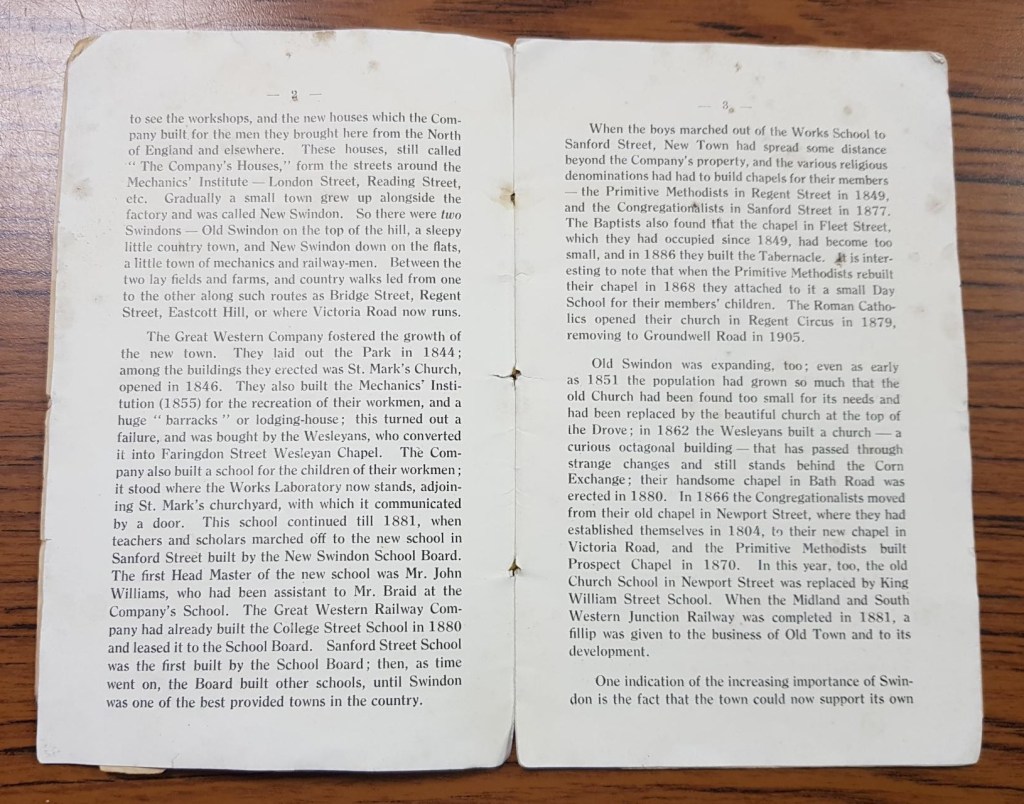 — 2 —
to see the workshops, and the new houses which the Com-
pany built for the men they brought here from the North
of England and elsewhere. These houses, still called
" The Company's Houses," form the streets around the
Mechanics' Institute — London Street, Reading Street,
etc. Gradually a small town grew up alongside the
factory and was called New Swindon. So there were two
Swindons — Old Swindon on the top of the hill, a sleepy
little country town, and New Swindon down on the flats,
a little town of mechanics and railway-men. Between the
two lay fields and farms, and country walks led from one
to the other along such routes as Bridge Street, Regent
Street, Eastcott Hill, or where Victoria Road now runs.
The Great Western Company fostered the growth of
the new town. They laid out the Park in 1844;
among the buildings they erected was St. Mark's Church,
opened in 1846. They also built the Mechanics' Insti-
tution (1855) for the recreation of their workmen, and a
huge " barracks " or lodging-house; this turned out a
failure, and was bought by the Wesleyans, who converted
it into Faringdon Street Wesleyan Chapel. The Com-
pany also built a school for the children of their workmen;
it stood where the Works Laboratory now stands, adjoin-
ing St. Mark's churchyard, with which it communicated
by a door. This school continued till 1881, when
teachers and scholars marched off to the new school in
Sanford Street built by the New Swindon School Board.
The first Head Master of the new school was Mr. John
Williams, who had been assistant to Mr. Braid at the
Company's School. The Great Western Railway Com-
pany had already built the College Street School in 1880
and leased it to the School Board. Sanford Street School
was the first built by the School Board; then, as time
went on, the Board built other schools, until Swindon
was one of the best provided towns in the country.
— 3 —
When the boys marched out of the Works School to
Sanford Street, New Town had spread some distance
beyond the Company's property, and the various religious
denominations had had to build chapels for their members
— the Primitive Methodists in Regent Street in 1849,
and the Congregationalists in Sanford Street in 1877.
The Baptists also found that the chapel in Fleet Street,
which they had occupied since 1849, had become too
small, and in 1886 they built the Tabernacle. It is inter-
esting to note that when the Primitive Methodists rebuilt
their chapel in 1868 they attached to it a small Day
School for their members' children. The Roman Catho-
lics opened their church in Regent Circus in 1879,
removing to Groundwell Road in 1905.
Old Swindon was expanding, too; even as early
as 1851 the population had grown so much that the
old Church had been found too small for its needs and
had been replaced by the beautiful church at the top of
the Drove; in 1862 the Wesleyans built a church — a
curious octagonal building — that has passed through
strange changes and still stands behind the Corn
Exchange; their handsome chapel in Bath Road was
erected in 1880. In 1866 the Congregationalists moved
from their old chapel in Newport Street, where they had
established themselves in 1804, to their new chapel in
Victoria Road, and the Primitive Methodists built
Prospect Chapel in 1870. In this year, too, the old
Church School in Newport Street was replaced by King
William Street School. When the Midland and South
Western Junction Railway was completed in 1881, a
fillip was given to the business of Old Town and to its
development.
One indication of the increasing importance of Swin-
don is the fact that the town could now support its own